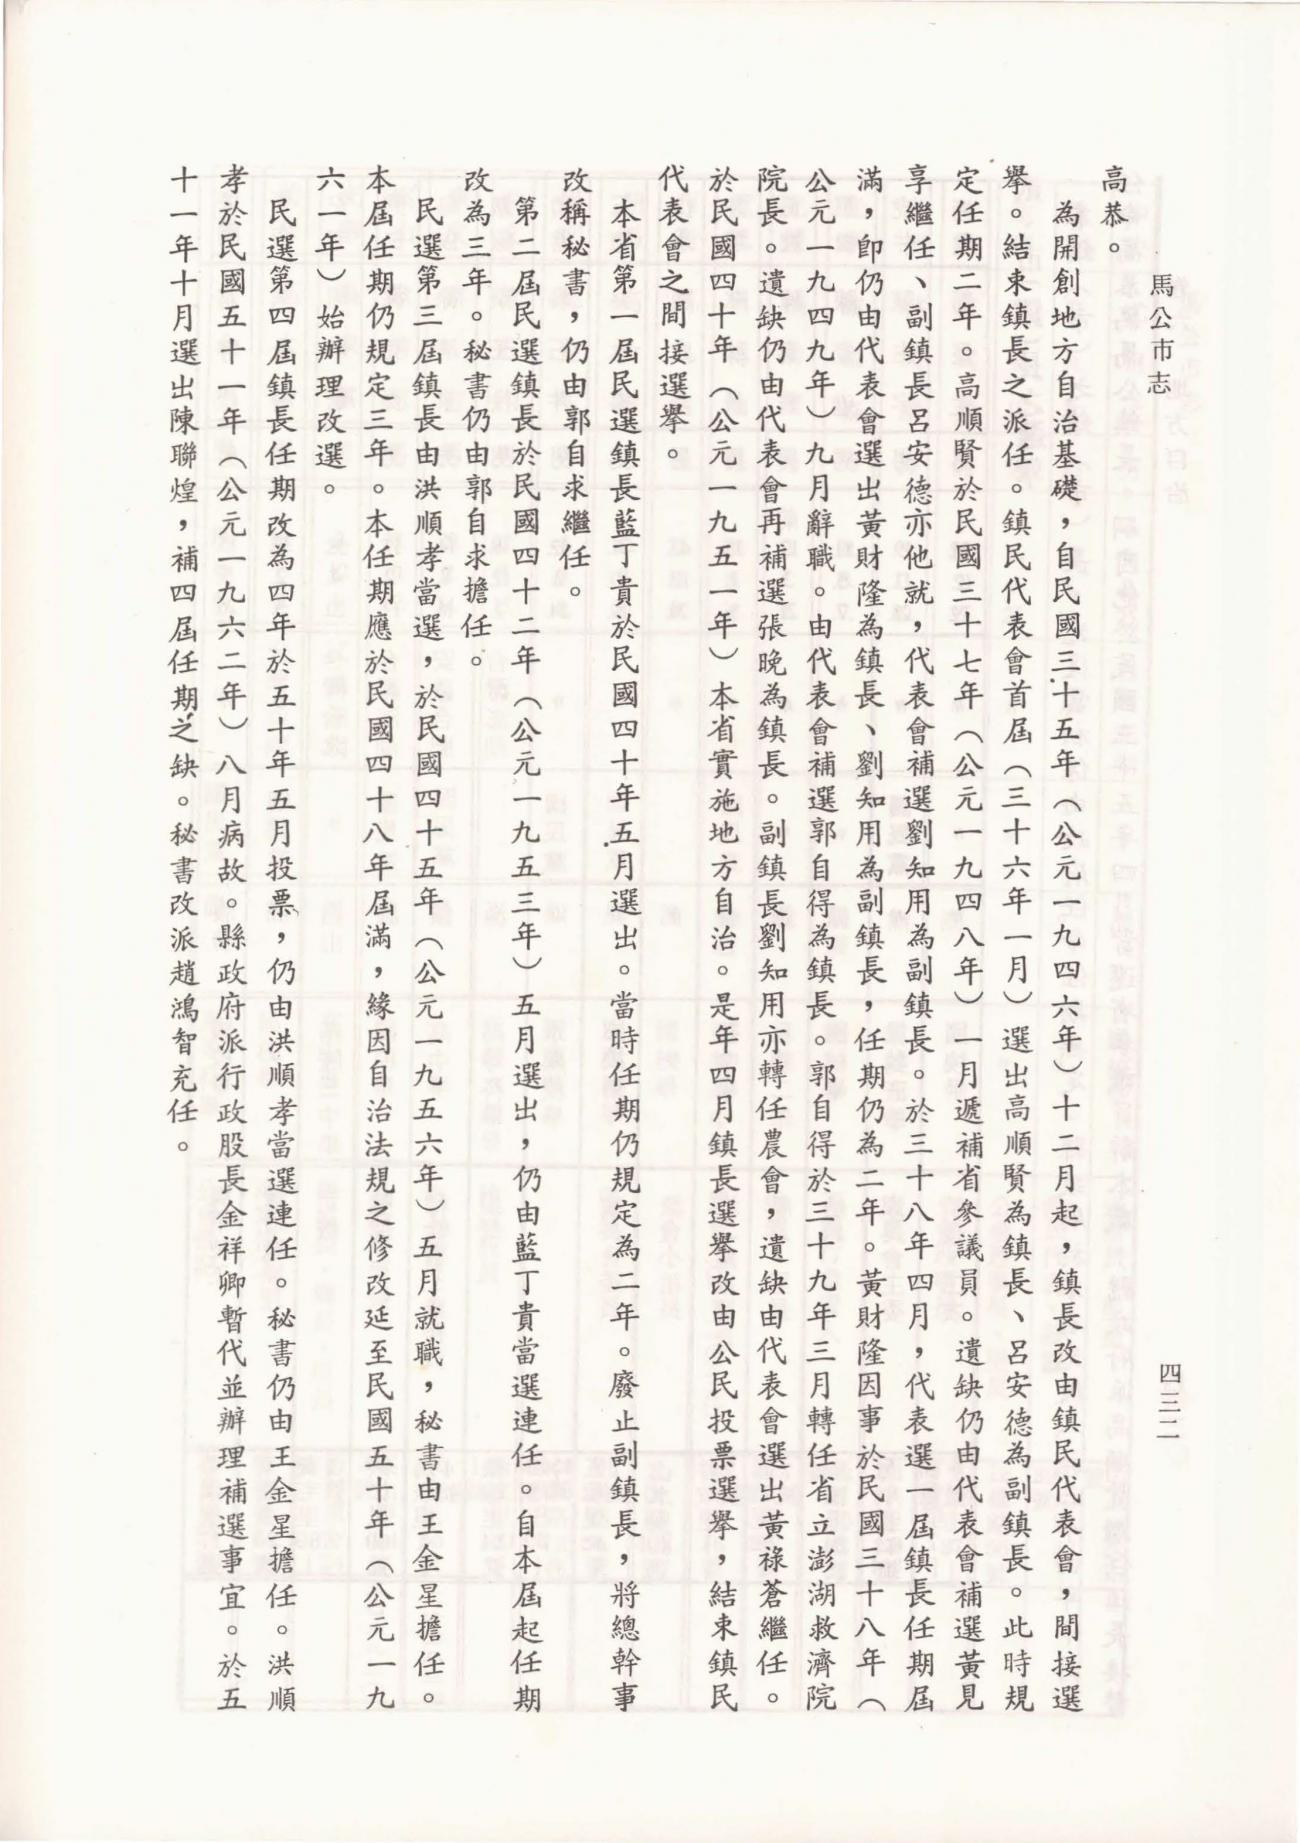 馬公市志
四三二
高恭。
為開創地方自治基礎，自民國三十五年（公元一九四六年）十二月起，鎮長改由鎮民代表會，間接選
舉。結束鎮長之派任。鎮民代表會首屆（三十六年一月）選出高順賢為鎮長、呂安德為副鎮長。此時規
定任期二年。高順賢於民國三十七年（公元一九四八年）一月遞補省參議員。遺缺仍由代表會補選黃見
享繼任、副鎮長呂安德亦他就，代表會補選劉知用為副鎮長。於三十八年四月，代表選一屆鎮長任期屆
滿，卽仍由代表會選出黃財隆為鎮長、劉知用為副鎮長，任期仍為二年。黃財隆因事於民國三十八年（
公元一九四九年）九月辭職。由代表會補選郭自得為鎮長。郭自得於三十九年三月轉任省立澎湖救濟院
院長。遺缺仍由代表會再補選張晚為鎮長。副鎮長劉知用亦轉任農會，遺缺由代表會選出黃祿蒼繼任。
於民國四十年（公元一九五一年）本省實施地方自治。是年四月鎮長選舉改由公民投票選舉，結束鎮民
代表會之間接選舉。
本省第一屆民選鎮長藍丁貴於民國四十年五月選出。當時任期仍規定為二年。廢止副鎮長，將總幹事
改稱秘書，仍由郭自求繼任。
第二屆民選鎮長於民國四十二年（公元一九五三年）五月選出，仍由藍丁貴當選連任。自本屆起任期
改為三年。秘書仍由郭自求擔任。
民選第三屆鎮長由洪順孝當選，於民國四十五年（公元一九五六年）五月就職，秘書由王金星擔任。
本屆任期仍規定三年。本任期應於民國四十八年屆滿，緣因自治法規之修改延至民國五十年（公元一九
六一年）始辦理改選。
民選第四屆鎮長任期改為四年於五十年五月投票，仍由洪順孝當選連任。秘書仍由王金星擔任。洪順
孝於民國五十一年（公元一九六二年）八月病故。縣政府派行政股長金祥卿暫代並辦理補選事宜。於五
十一年十月選出陳聯煌，補四屆任期之缺。秘書改派趙鴻智充任。